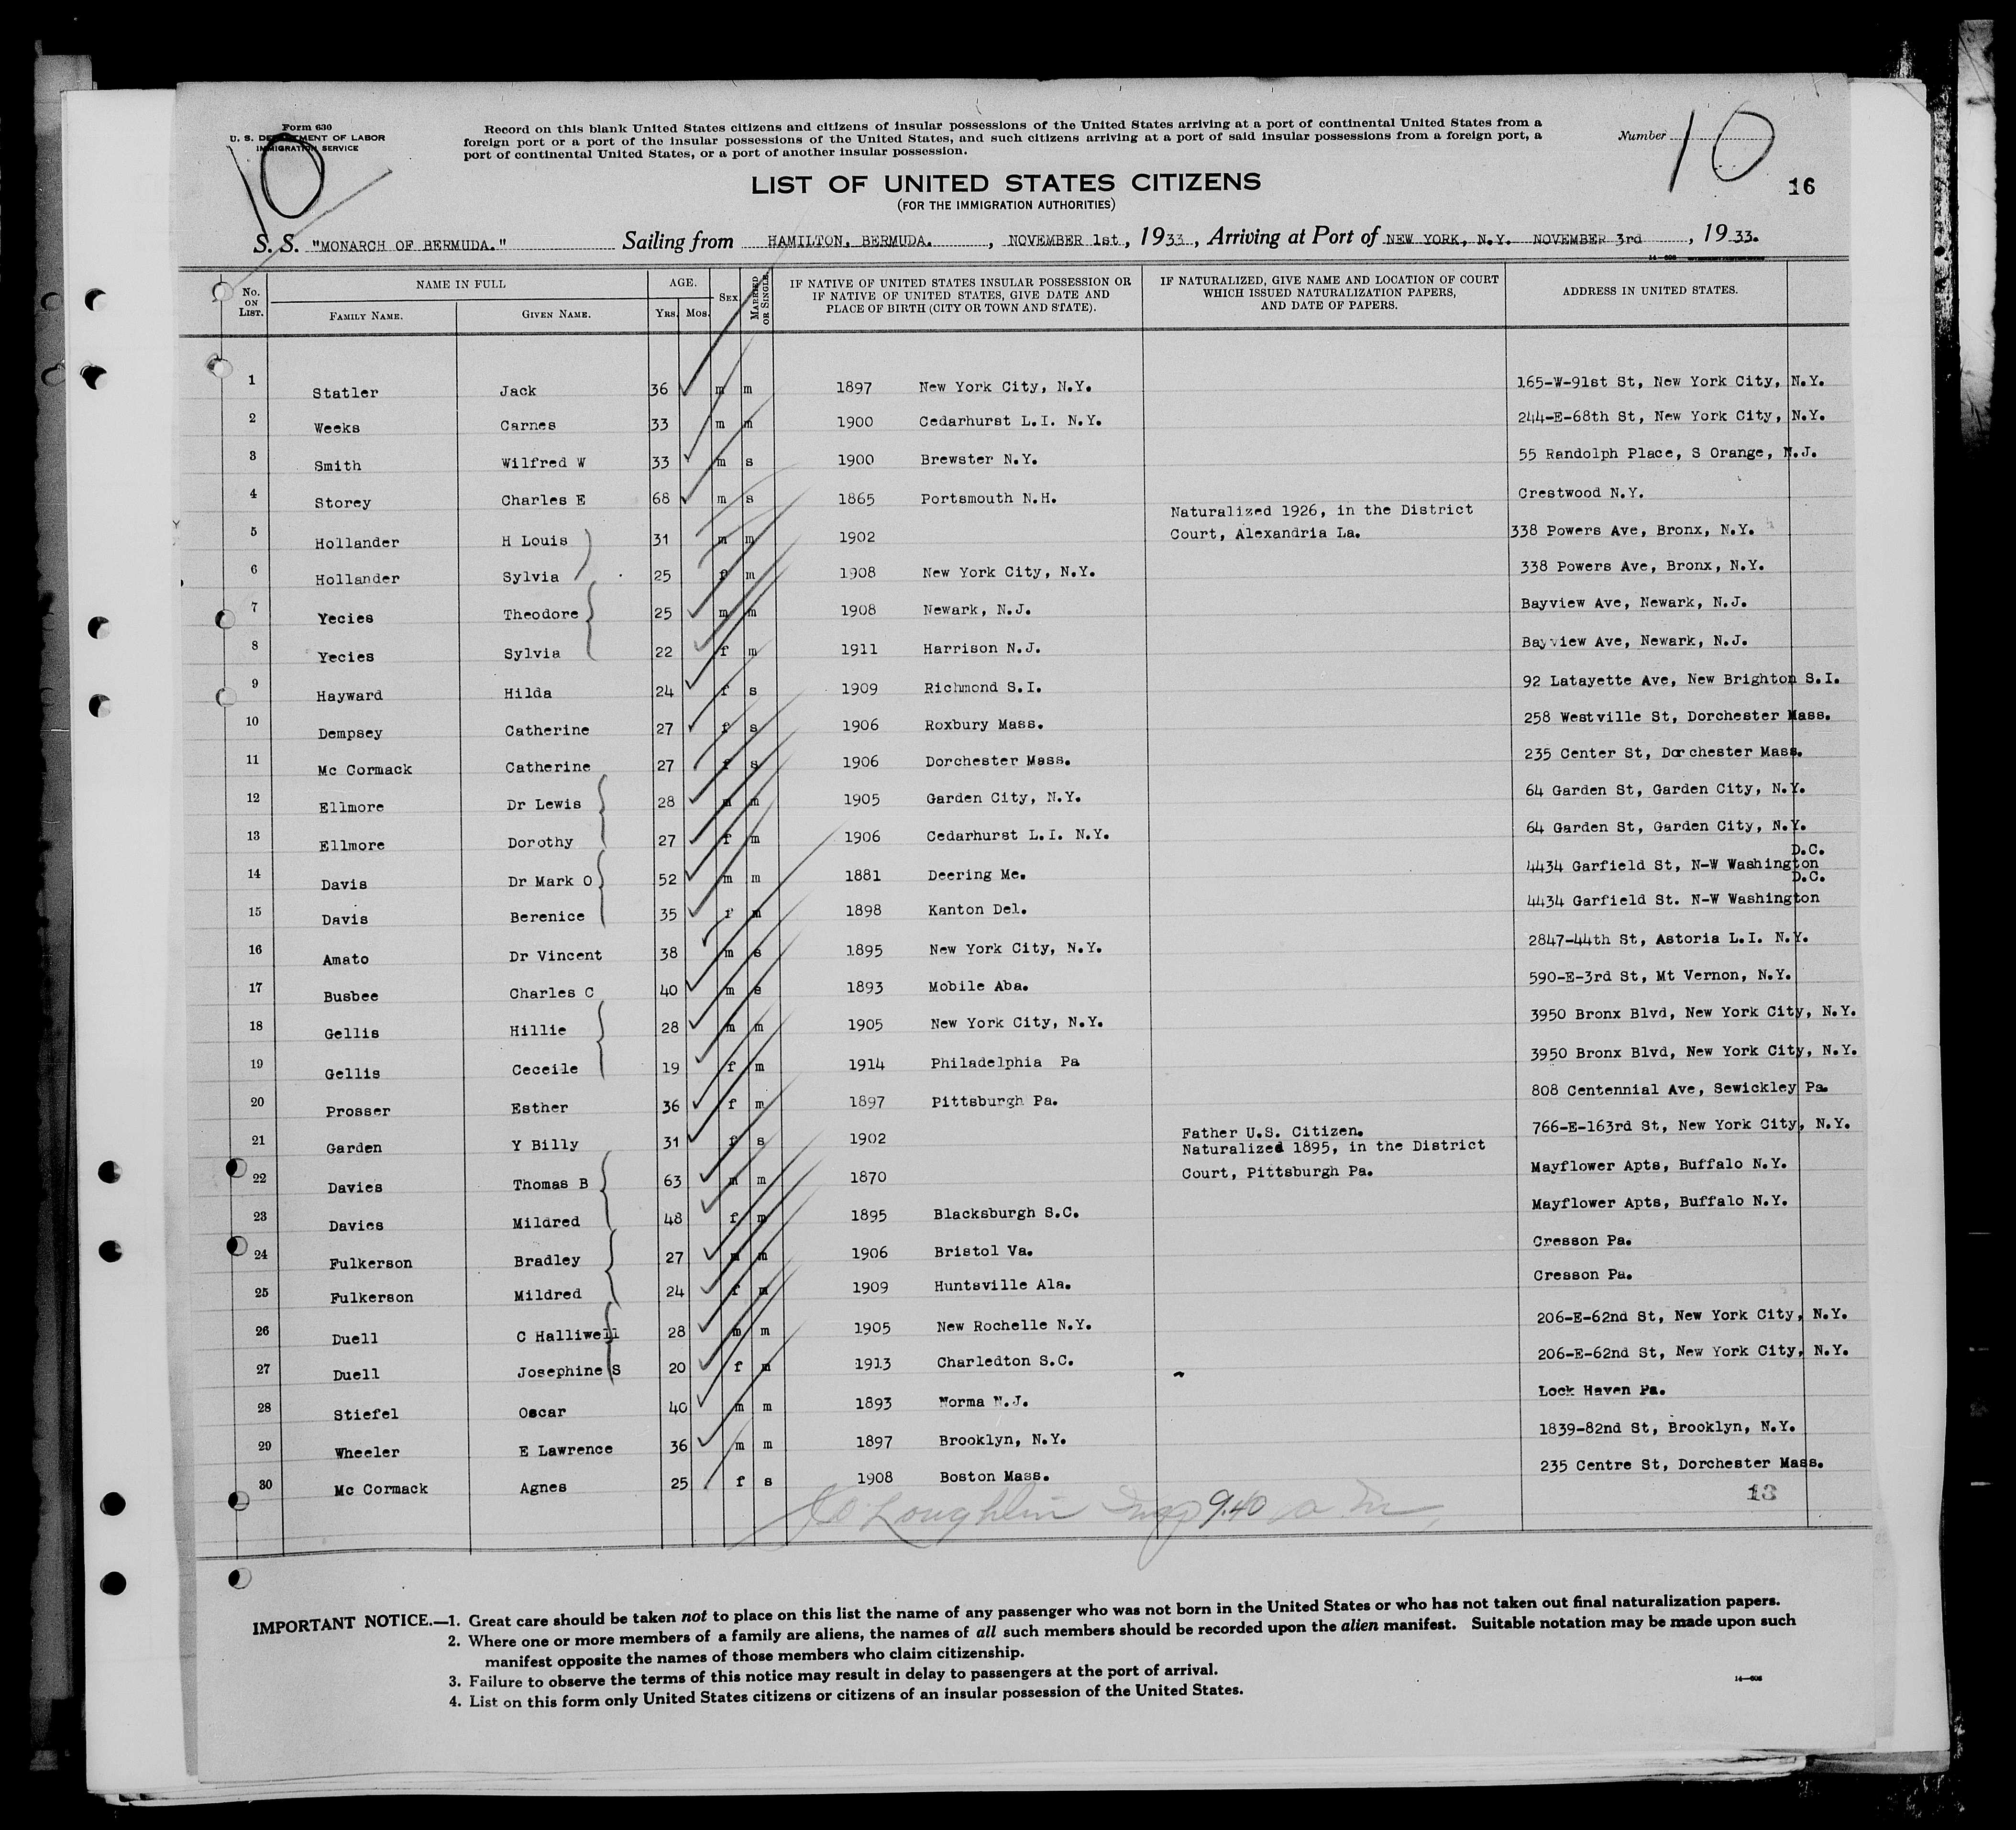 Form 630
U. S. DEPARTMENT OF LABOR
IMMIGRATION SERVICE
10
Record on this blank United States citizens and citizens of insular possessions of the United States arriving at a port of continental United States from a
foreign port or a port of the insular possessions of the United States, and such citizens arriving at a port of said insular possessions from a foreign port, a
port of continental United States, or a port of another insular possession.
Number 10
16
LIST OF UNITED STATES CITIZENS
(FOR THE IMMIGRATION AUTHORITIES)
S. S. "MONARCH OF BERMUDA." Sailing from HAMILTON, BERMUDA. , NOVEMBER 1st, 1933, Arriving at Port of NEW YORK, N.Y. NOVEMBER 3rd , 1933.
No. ON LIST. NAME IN FULL FAMILY NAME. GIVEN NAME. AGE. YRS. MOS. SEX MARRIED OR SINGLE. IF NATIVE OF UNITED STATES INSULAR POSSESSION OR IF NATIVE OF UNITED STATES, GIVE DATE AND PLACE OF BIRTH (CITY OR TOWN AND STATE). IF NATURALIZED, GIVE NAME AND LOCATION OF COURT WHICH ISSUED NATURALIZATION PAPERS, AND DATE OF PAPERS. ADDRESS IN UNITED STATES.
1 Statler Jack 36 m m 1897 New York City, N.Y. 165-W-91st St, New York City, N.Y.
2 Weeks Carnes 33 m m 1900 Cedarhurst L.I. N.Y. 244-E-68th St, New York City, N.Y.
3 Smith Wilfred W 33 m s 1900 Brewster N.Y. 55 Randolph Place, S Orange, N.J.
4 Storey Charles E 68 m s 1865 Portsmouth N.H. Crestwood N.Y.
Naturalized 1926, in the District
5 Hollander H Louis 31 m m 1902 Court, Alexandria La. 338 Powers Ave, Bronx, N.Y.
6 Hollander Sylvia 25 f m 1908 New York City, N.Y. 338 Powers Ave, Bronx, N.Y.
7 Yecies Theodore 25 m m 1908 Newark, N.J. Bayview Ave, Newark, N.J.
8 Yecies Sylvia 22 f m 1911 Harrison N.J. Bayview Ave, Newark, N.J.
9 Hayward Hilda 24 f s 1909 Richmond S.I. 92 Latayette Ave, New Brighton S.I.
10 Dempsey Catherine 27 f s 1906 Roxbury Mass. 258 Westville St, Dorchester Mass.
11 Mc Cormack Catherine 27 f s 1906 Dorchester Mass. 235 Center St, Dorchester Mass.
12 Ellmore Dr Lewis 28 m m 1905 Garden City, N.Y. 64 Garden St, Garden City, N.Y.
13 Ellmore Dorothy 27 f m 1906 Cedarhurst L.I. N.Y. 64 Garden St, Garden City, N.Y.
D.C.
14 Davis Dr Mark O 52 m m 1881 Deering Me. 4434 Garfield St, N-W Washington
D.C.
15 Davis Berenice 35 f m 1898 Kanton Del. 4434 Garfield St. N-W Washington
16 Amato Dr Vincent 38 m s 1895 New York City, N.Y. 2847-44th St, Astoria L.I. N.Y.
17 Busbee Charles C 40 m s 1893 Mobile Aba. 590-E-3rd St, Mt Vernon, N.Y.
18 Gellis Hillie 28 m m 1905 New York City, N.Y. 3950 Bronx Blvd, New York City, N.Y.
19 Gellis Ceceile 19 f m 1914 Philadelphia Pa 3950 Bronx Blvd, New York City, N.Y.
20 Prosser Esther 36 f m 1897 Pittsburgh Pa. 808 Centennial Ave, Sewickley Pa.
21 Garden Y Billy 31 f s 1902 Father U.S. Citizen. 766-E-163rd St, New York City, N.Y.
Naturalized 1895, in the District
22 Davies Thomas B 63 m m 1870 Court, Pittsburgh Pa. Mayflower Apts, Buffalo N.Y.
23 Davies Mildred 48 f m 1895 Blacksburgh S.C. Mayflower Apts, Buffalo N.Y.
24 Fulkerson Bradley 27 m m 1906 Bristol Va. Cresson Pa.
25 Fulkerson Mildred 24 f m 1909 Huntsville Ala. Cresson Pa.
26 Duell C Halliwell 28 m m 1905 New Rochelle N.Y. 206-E-62nd St, New York City, N.Y.
27 Duell Josephine S 20 f m 1913 Charledton S.C. 206-E-62nd St, New York City, N.Y.
28 Stiefel Oscar 40 m m 1893 Norma N.J. Lock Haven Pa.
29 Wheeler E Lawrence 36 m m 1897 Brooklyn, N.Y. 1839-82nd St, Brooklyn, N.Y.
30 Mc Cormack Agnes 25 f s 1908 Boston Mass. 235 Centre St, Dorchester Mass.
O'Loughlin Insp 9.40 a m
13
IMPORTANT NOTICE.—1. Great care should be taken not to place on this list the name of any passenger who was not born in the United States or who has not taken out final naturalization papers.
2. Where one or more members of a family are aliens, the names of all such members should be recorded upon the alien manifest. Suitable notation may be made upon such
manifest opposite the names of those members who claim citizenship.
3. Failure to observe the terms of this notice may result in delay to passengers at the port of arrival.
4. List on this form only United States citizens or citizens of an insular possession of the United States.